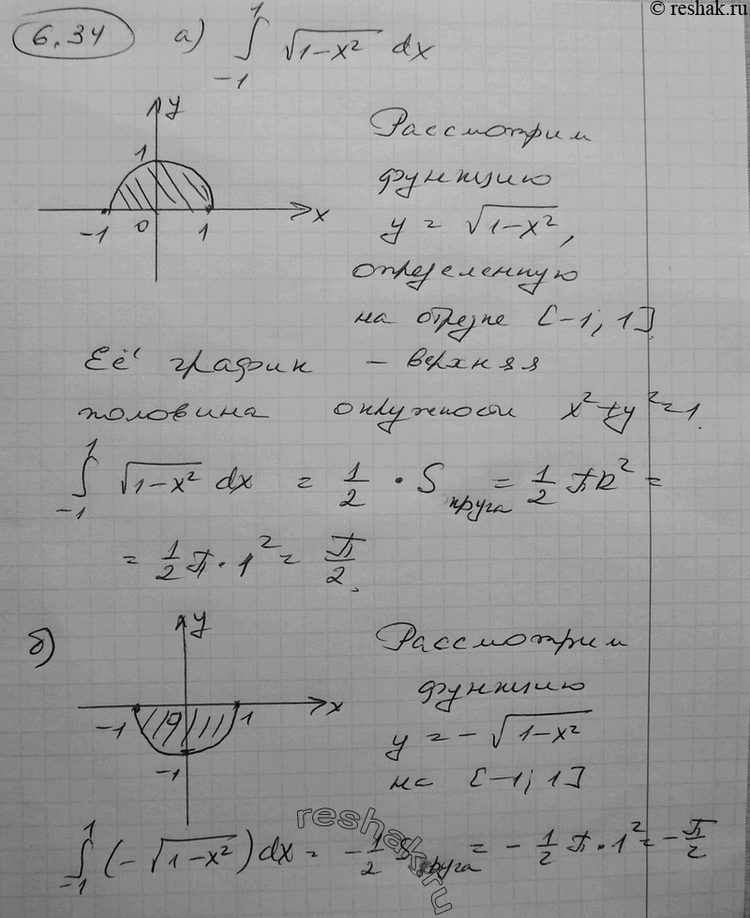 © reshak.ru
6.34 а) ∫₋₁¹ √(1-x²) dx
y
1
-1 0 1 x
Рассмотрим
функцию
y = √(1-x²),
определенную
на отрезке [-1; 1].
Её график – верхняя
половина окружности x²+y²=1.
∫₋₁¹ √(1-x²) dx = 1/2 · S круга = 1/2 πR² =
= 1/2 π · 1² = π/2.
б)
y
-1 1 x
-1
Рассмотрим
функцию
y = -√(1-x²)
на [-1; 1]
reshak.ru
∫₋₁¹ (-√(1-x²)) dx = -1/2 S круга = -1/2 π · 1² = -π/2